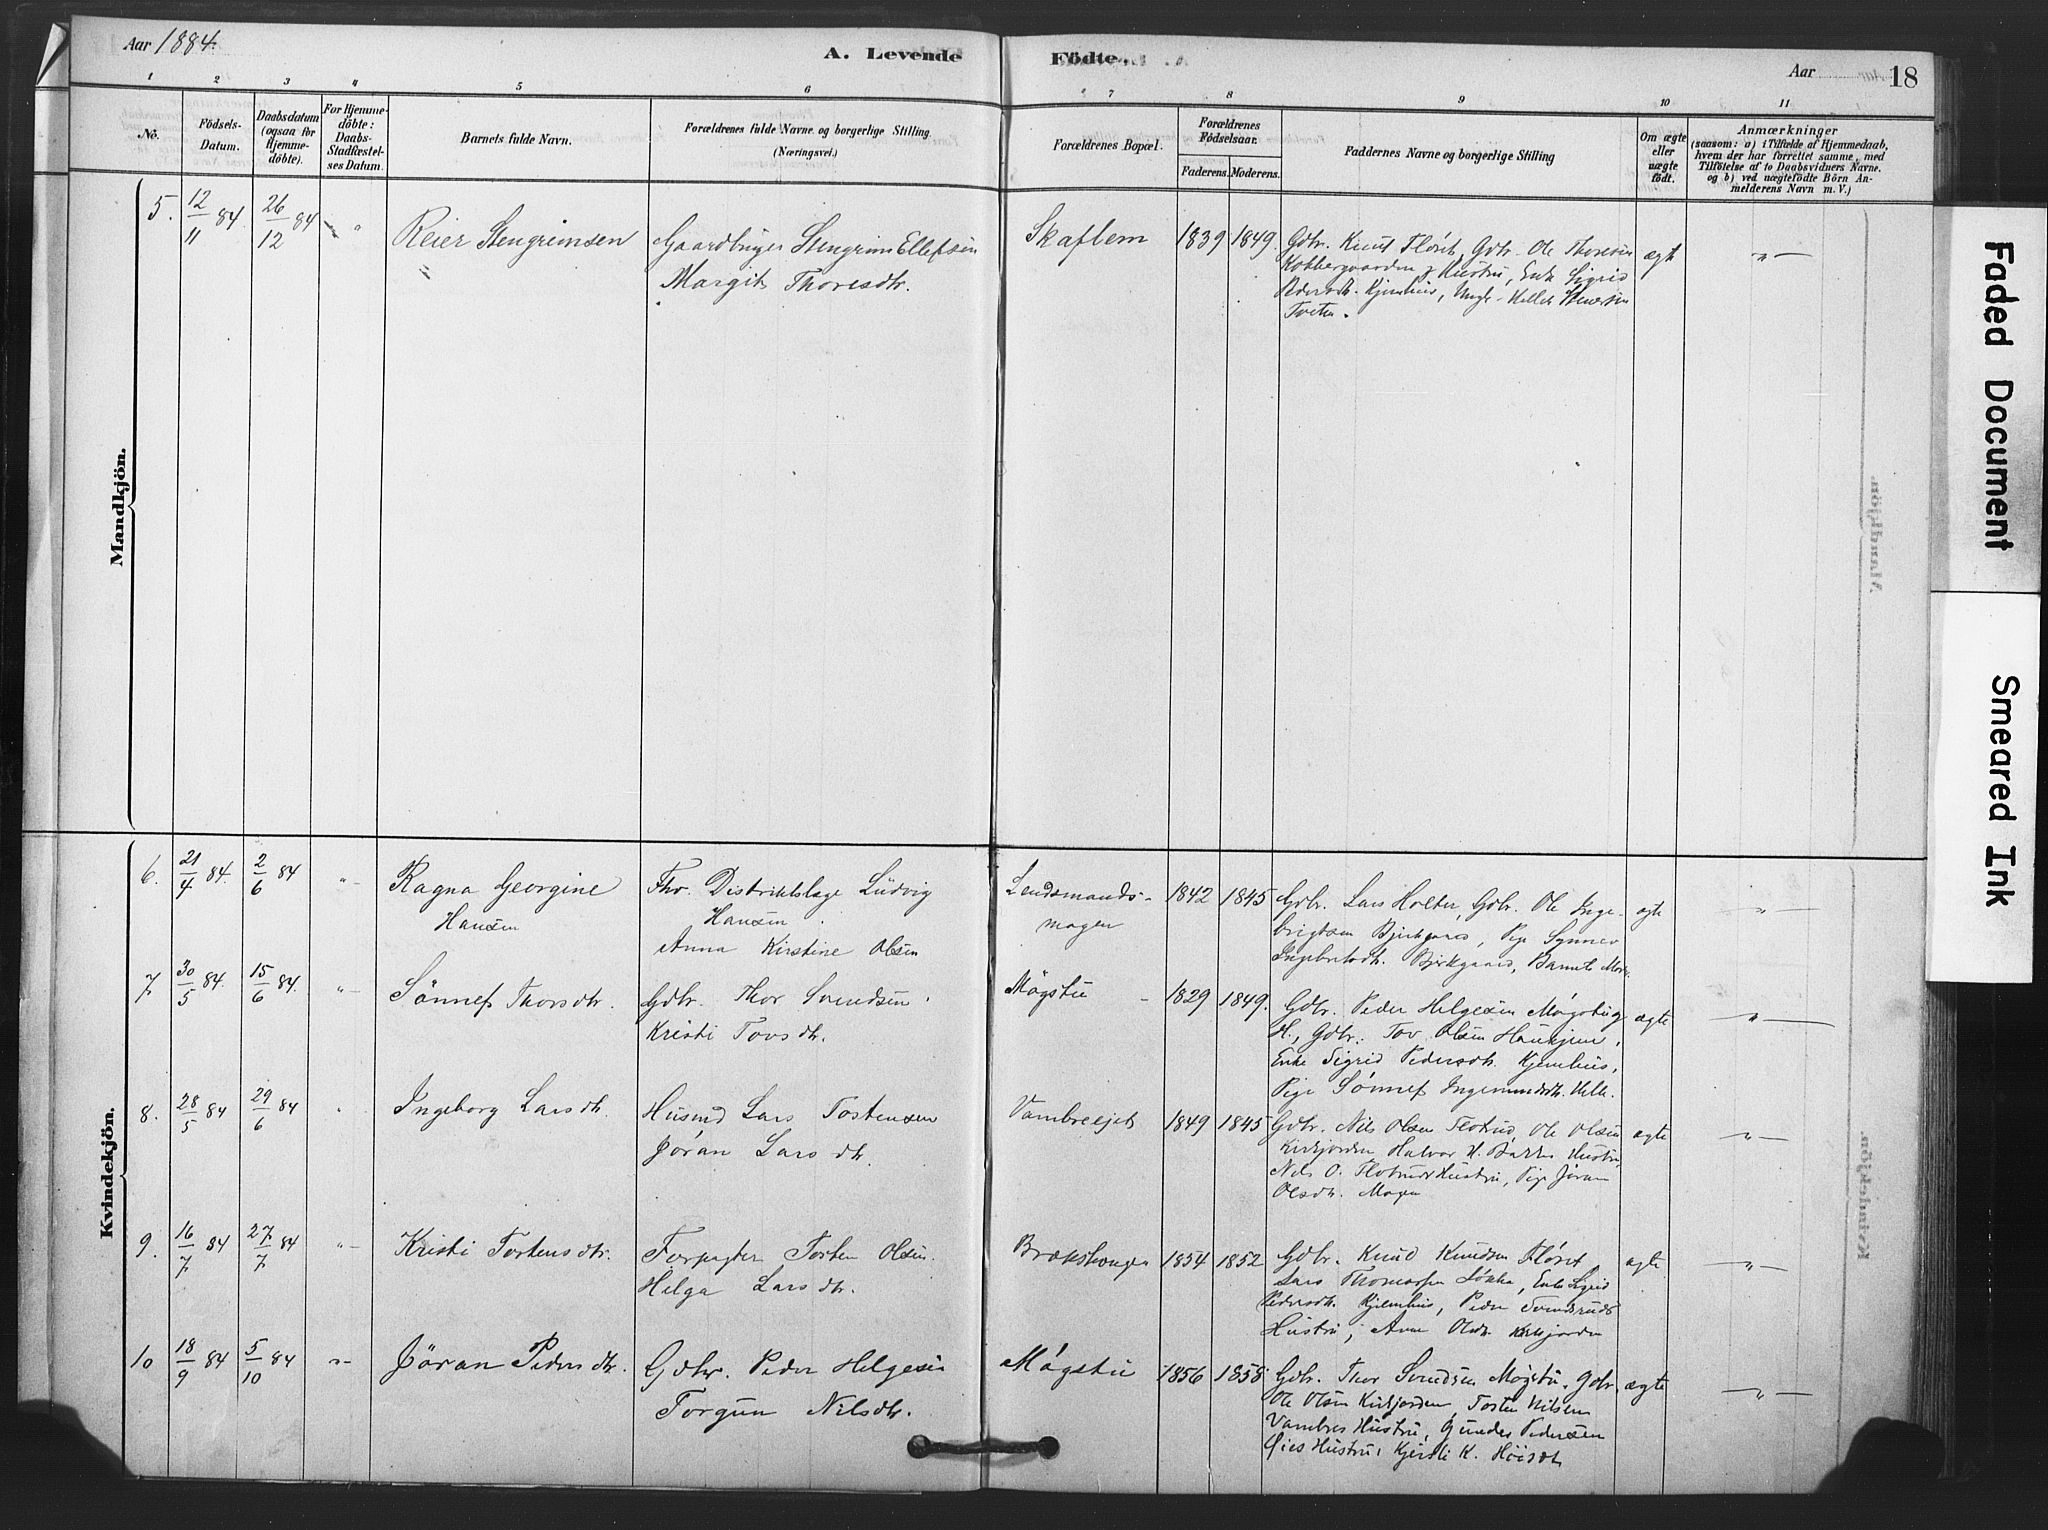 Aar 1884.
A. Levende
Födte.
Aar
18
1 2 3 4 5 6 7 8 9 10 11
No.
Födsels-
Datum.
Daabsdatum
(ogsaa for
Hjemme-
döbte).
For Hjemme-
döbte:
Daabs-
Stadfæstel-
ses Datum.
Barnets fulde Navn.
Forældrenes fulde Navne og borgerlige Stilling
(Næringsvei.)
Forældrenes Bopæl.
Forældrenes
Födselsaar.
Faderens. Moderens.
Faddernes Navne og borgerlige Stilling
Om ægte
eller
uægte
födt.
Anmærkninger
(saasom: a) i Tilfælde af Hjemmedaab,
hvem der har forrettet samme, med
Tilföielse af to Daabsvidners Navne.
og b) ved uægtefödte Börn An-
melderens Navn m. V.)
Mandkjön.
5. 12/11 84. 26/12 84 "
Reier Stengrimsen
Gaardbruger Stengrim Ellefsen
Margit Thoresdtr.
Skaflem
1839 1849.
Gdbr. Knut Fløset, Gdbr. Ole Thoresen
Kobbergaarden & Hustru, Enk Sigrid
Pedersdtr. Kjemhus, Ungk. Helleik Stenersen
Toeten.
ægt
— " —
Kvindekjön.
6. 21/4 84. 2/6 84 "
Ragna Georgine
Hansen
Fhv. Distriktslæge Lüdvig
Hansen.
Anna Kirstine Olsen
Lendsmands-
mogen
1842 1845
Gdbr. Lars Holter, Gdbr. Ole Inge-
brigtsen Bjerkgaard, Pige Synnev
Ingebretsdtr. Bjerkgaard, Barnets Mor.
ægte
— " —
7. 30/5 84. 15/6 84. "
Sönnef Thorsdtr.
Gdbr. Thor Svendsen.
Kristi Tovsdtr.
Mögstu
1829 1849.
Gdbr. Peder Helgesen Møgstu g
H., Gdbr. Tov Olsen Haukjem,
Enke Sigrid Pedersdtr. Kjemhus,
Pige Sönnef Ingemundsdtr. Velle.
ægte
— " —
8. 28/5 84 29/6 84 "
Ingeborg Larsdtr.
Husmd Lars Tostensen
Jöran Larsdtr.
Vambreejet
1849 1845
Gdbr. Nils Olsen Flotrud, Ole Olsen
Kirkjorden Halvor H. Bakkes Hustru,
Nils O. Flotruds Hustru, Pige Jöran
Olsdtr. Mogen
ægte
— " —
9. 16/7 84 27/7 84 "
Kristi Tostensdtr.
Forpagter Tosten Olsen.
Helga Larsdtr.
Brækshaugen
1854 1852
Gdbr. Knud Knudsen Fløset
Lars Thomassen Løkka, Enk Sigrid
Pedersdtr. Kjemhus, Peder Svendsruds
Hustru, Anne Olsdtr. Kirkjorden
ægte.
— " —
10 18/9 84 5/10 84 "
Jöran Pedersdtr.
Gdbr. Peder Helgesen
Torgun Nilsdtr.
Møgstu
1856 1858
Gdbr. Thor Svendsen Møgstu, Gdbr.
Ole Olsen Kirkjorden, Tosten Nilsen
Vambres Hustru, Gunder Pedersen
Hustru, Kjersti K.
ægte
— " —
Faded Document
Smeared Ink